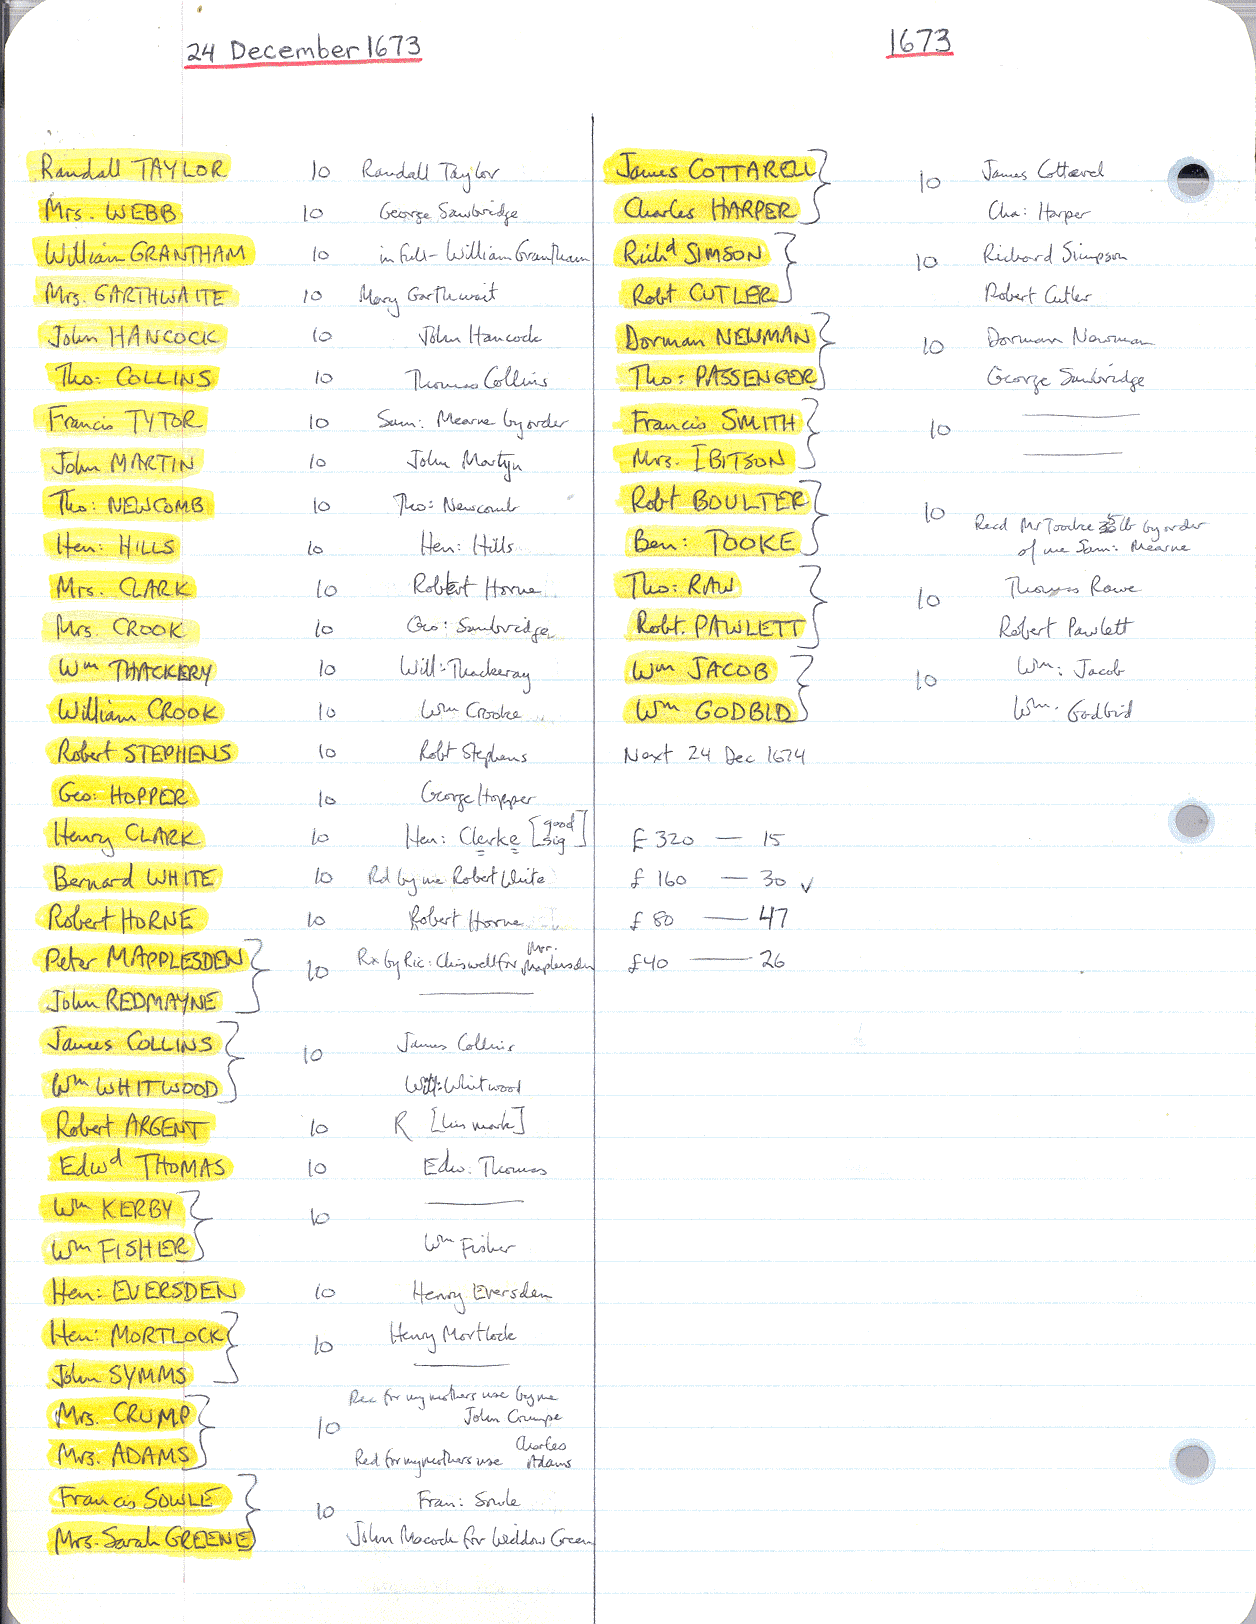 24 December 1673
Randall TAYLOR 10 Randall Taylor
Mrs. WEBB 10 George Sawbridge
William GRANTHAM 10 in full - William Grantham
Mrs. GARTHWAITE 10 Mary Garthwait
John HANCOCK 10 John Hancock
Tho: COLLINS 10 Thomas Collins
Francis TYTOR 10 Sam: Mearne by order
John MARTIN 10 John Martyn
Tho: NEWCOMB 10 Tho: Newcomb
Hen: HILLS 10 Hen: Hills
Mrs. CLARK 10 Robert Horne
Mrs. CROOK 10 Geo: Sawbridge
Wm THACKERY 10 Will: Thackeray
William CROOK 10 Wm Crooke
Robert STEPHENS 10 Robt Stephens
Geo: HOPPER 10 George Hopper
Henry CLARK 10 Hen: Clerke [good sig]
Bernard WHITE 10 Rd by me Robert White
Robert HORNE 10 Robert Horne
Peter MAPPLESDEN 10 Rx by Ric: Chiswell for Mr. Maplesden
John REDMAYNE
James COLLINS 10 James Collins
Wm WHITWOOD Will: Whitwood
Robert ARGENT 10 R [his mark]
Edwd THOMAS 10 Edw: Thomas
Wm KERBY 10
Wm FISHER Wm Fisher
Hen: EVERSDEN 10 Henry Eversden
Hen: MORTLOCK 10 Henry Mortlock
John SYMMS
Mrs. CRUMP 10 Rec for my mothers use by me John Crumpe
Mrs. ADAMS Recd for my mothers use Charles Adams
Francis SOWLE 10 Fran: Sowle
Mrs. Sarah GREENE John Macock for Widdow Green
1673
James COTTARELL 10 James Cottarel
Charles HARPER Cha: Harper
Richd SIMSON 10 Richard Simpson
Robt CUTLER Robert Cutler
Dorman NEWMAN 10 Dorman Newman
Tho: PASSENGER George Sawbridge
Francis SMITH 10
Mrs. IBITSON
Robt BOULTER 10
Ben: TOOKE Recd Mr Tooke 5 lb by order
of me Sam: Mearne
Tho: RAW 10 Thomas Rawe
Robt. PAWLETT Robert Pawlett
Wm JACOB 10 Wm: Jacob
Wm GODBID Wm. Godbid
Next 24 Dec 1674
£ 320 — 15
£ 160 — 30 ✓
£ 80 — 47
£40 — 26